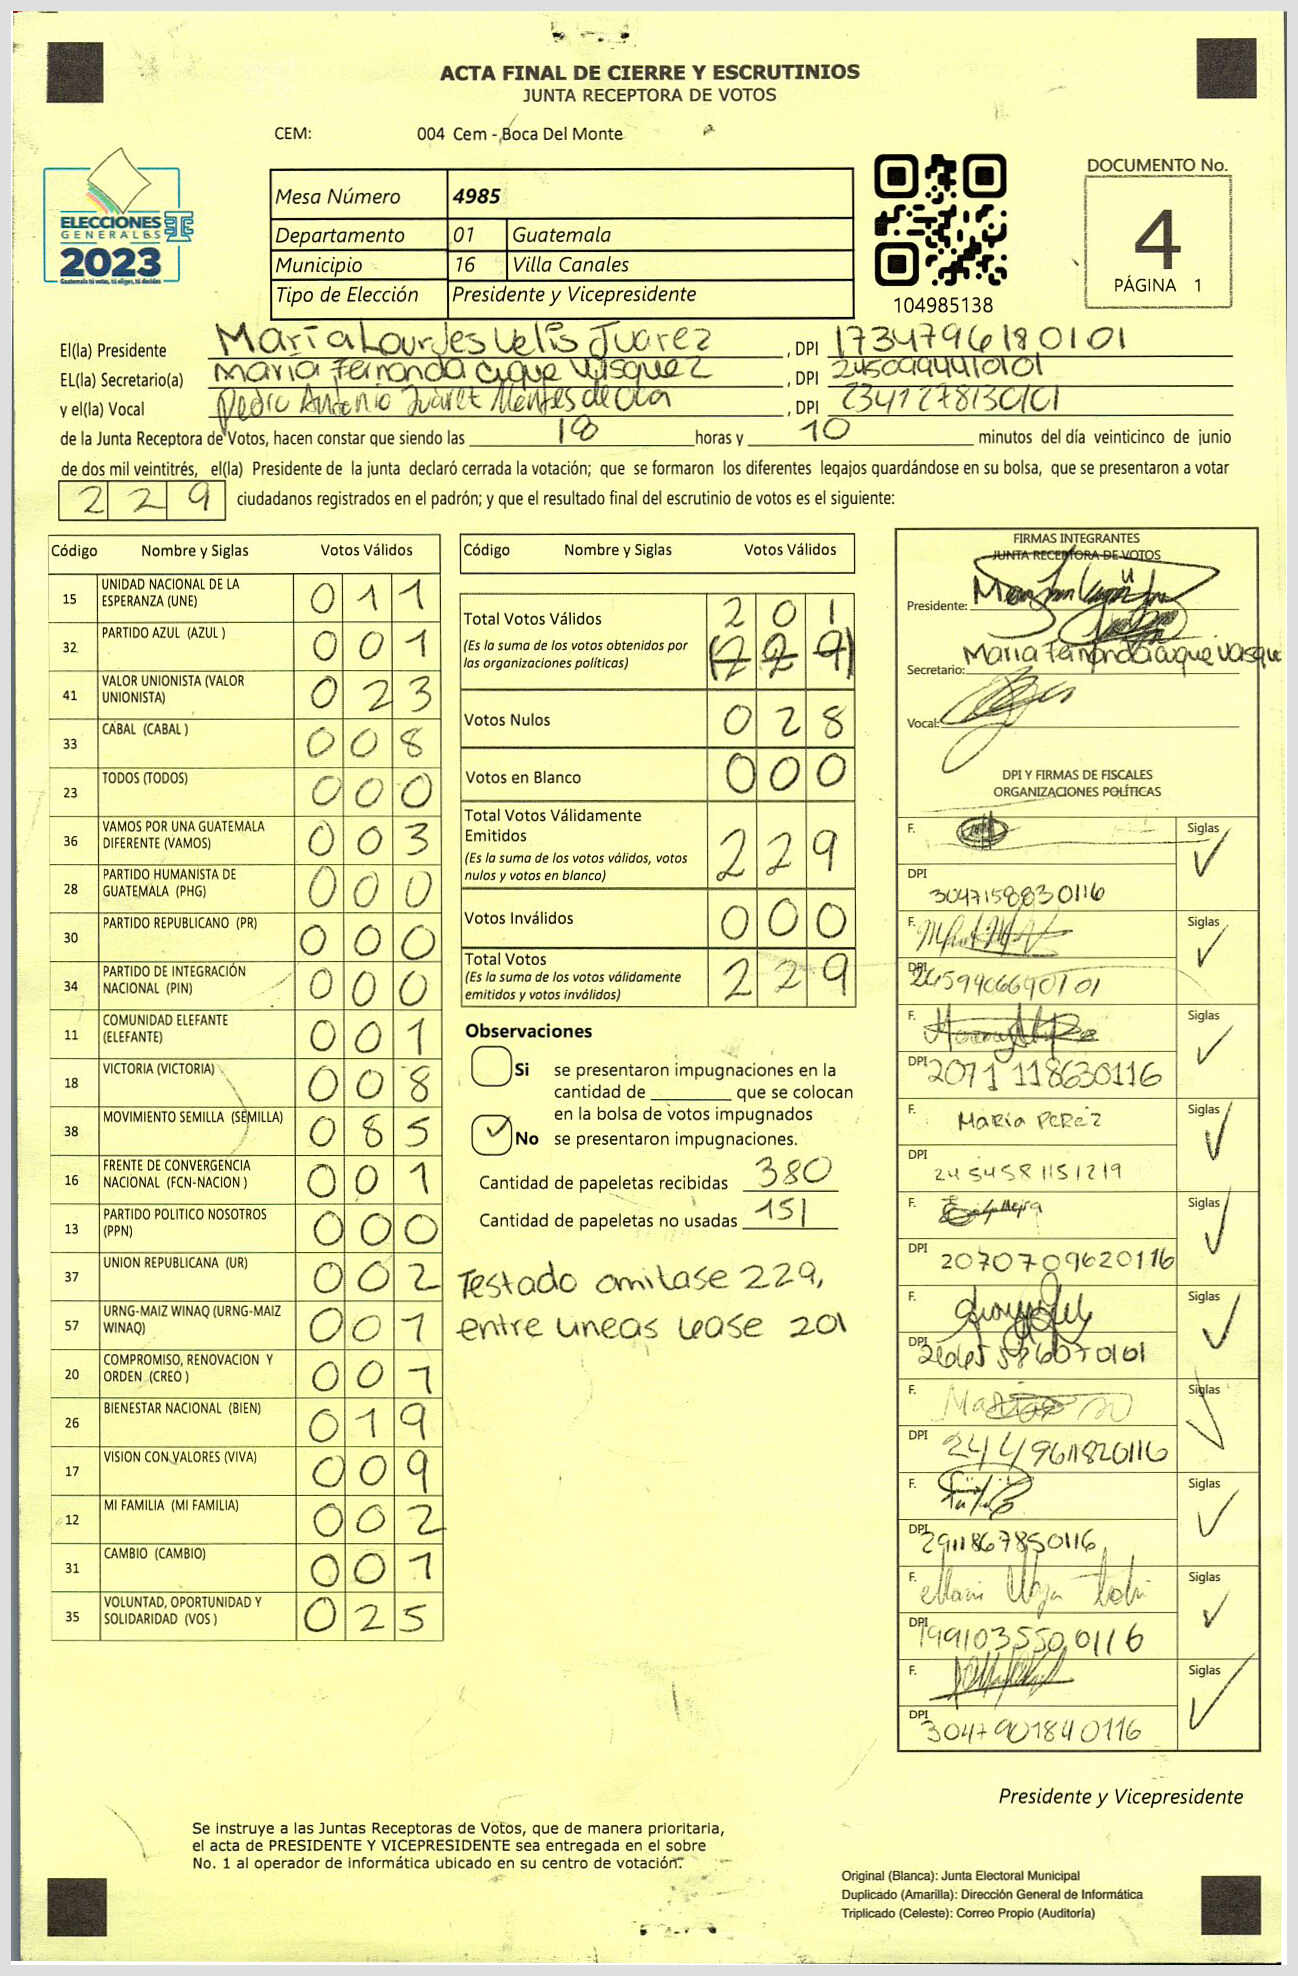 ACTA FINAL DE CIERRE Y ESCRUTINIOS
JUNTA RECEPTORA DE VOTOS
CEM: 004 Cem - Boca Del Monte
ELECCIONES
GENERALES
2023
Guatemala tú votas, tú eliges, tú decides
Mesa Número 4985
Departamento 01 Guatemala
Municipio 16 Villa Canales
Tipo de Elección Presidente y Vicepresidente
104985138
DOCUMENTO No.
4
PÁGINA 1
El(la) Presidente María Lourdes Velis Juarez, DPI 1734796180101
EL(la) Secretario(a) Maria Fernanda Cuque Vasquez, DPI 2450944410101
y el(la) Vocal Pedro Antonio Juárez Montes de Oca, DPI 2341278130101
de la Junta Receptora de Votos, hacen constar que siendo las 18 horas y 10 minutos del día veinticinco de junio
de dos mil veintitrés, el(la) Presidente de la junta declaró cerrada la votación; que se formaron los diferentes legajos guardándose en su bolsa, que se presentaron a votar
229 ciudadanos registrados en el padrón; y que el resultado final del escrutinio de votos es el siguiente:
Código Nombre y Siglas Votos Válidos
15 UNIDAD NACIONAL DE LA ESPERANZA (UNE) 011
32 PARTIDO AZUL (AZUL ) 001
41 VALOR UNIONISTA (VALOR UNIONISTA) 023
33 CABAL (CABAL ) 008
23 TODOS (TODOS) 000
36 VAMOS POR UNA GUATEMALA DIFERENTE (VAMOS) 003
28 PARTIDO HUMANISTA DE GUATEMALA (PHG) 000
30 PARTIDO REPUBLICANO (PR) 000
34 PARTIDO DE INTEGRACIÓN NACIONAL (PIN) 000
11 COMUNIDAD ELEFANTE (ELEFANTE) 001
18 VICTORIA (VICTORIA) 008
38 MOVIMIENTO SEMILLA (SEMILLA) 085
16 FRENTE DE CONVERGENCIA NACIONAL (FCN-NACION ) 001
13 PARTIDO POLITICO NOSOTROS (PPN) 000
37 UNION REPUBLICANA (UR) 002
57 URNG-MAIZ WINAQ (URNG-MAIZ WINAQ) 001
20 COMPROMISO, RENOVACION Y ORDEN (CREO ) 001
26 BIENESTAR NACIONAL (BIEN) 019
17 VISION CON VALORES (VIVA) 009
12 MI FAMILIA (MI FAMILIA) 002
31 CAMBIO (CAMBIO) 001
35 VOLUNTAD, OPORTUNIDAD Y SOLIDARIDAD (VOS ) 025
Código Nombre y Siglas Votos Válidos
Total Votos Válidos 201
(Es la suma de los votos obtenidos por las organizaciones políticas) (229)
Votos Nulos 028
Votos en Blanco 000
Total Votos Válidamente Emitidos 229
(Es la suma de los votos válidos, votos nulos y votos en blanco)
Votos Inválidos 000
Total Votos 229
(Es la suma de los votos válidamente emitidos y votos inválidos)
Observaciones
Si se presentaron impugnaciones en la
cantidad de ________ que se colocan
en la bolsa de votos impugnados
No se presentaron impugnaciones.
Cantidad de papeletas recibidas 380
Cantidad de papeletas no usadas 151
Testado omitase 229,
entre lineas lease 201
FIRMAS INTEGRANTES
JUNTA RECEPTORA DE VOTOS
Presidente:
Secretario: Maria Fernanda Cuque Vasque
Vocal:
DPI Y FIRMAS DE FISCALES
ORGANIZACIONES POLÍTICAS
F. Siglas
DPI 3047158830116
F. Siglas
DPI 2459406690101
F. Siglas
DPI 2071118630116
F. María Perez Siglas
DPI 2454581151219
F. Siglas
DPI 2070709620116
F. Siglas
DPI
F. Siglas
DPI 2449611820116
F. Siglas
DPI 2911867850116
F. Siglas
DPI 1991035500116
F. Siglas
DPI 3047901840116
Presidente y Vicepresidente
Se instruye a las Juntas Receptoras de Votos, que de manera prioritaria,
el acta de PRESIDENTE Y VICEPRESIDENTE sea entregada en el sobre
No. 1 al operador de informática ubicado en su centro de votación.
Original (Blanca): Junta Electoral Municipal
Duplicado (Amarilla): Dirección General de Informática
Triplicado (Celeste): Correo Propio (Auditoría)